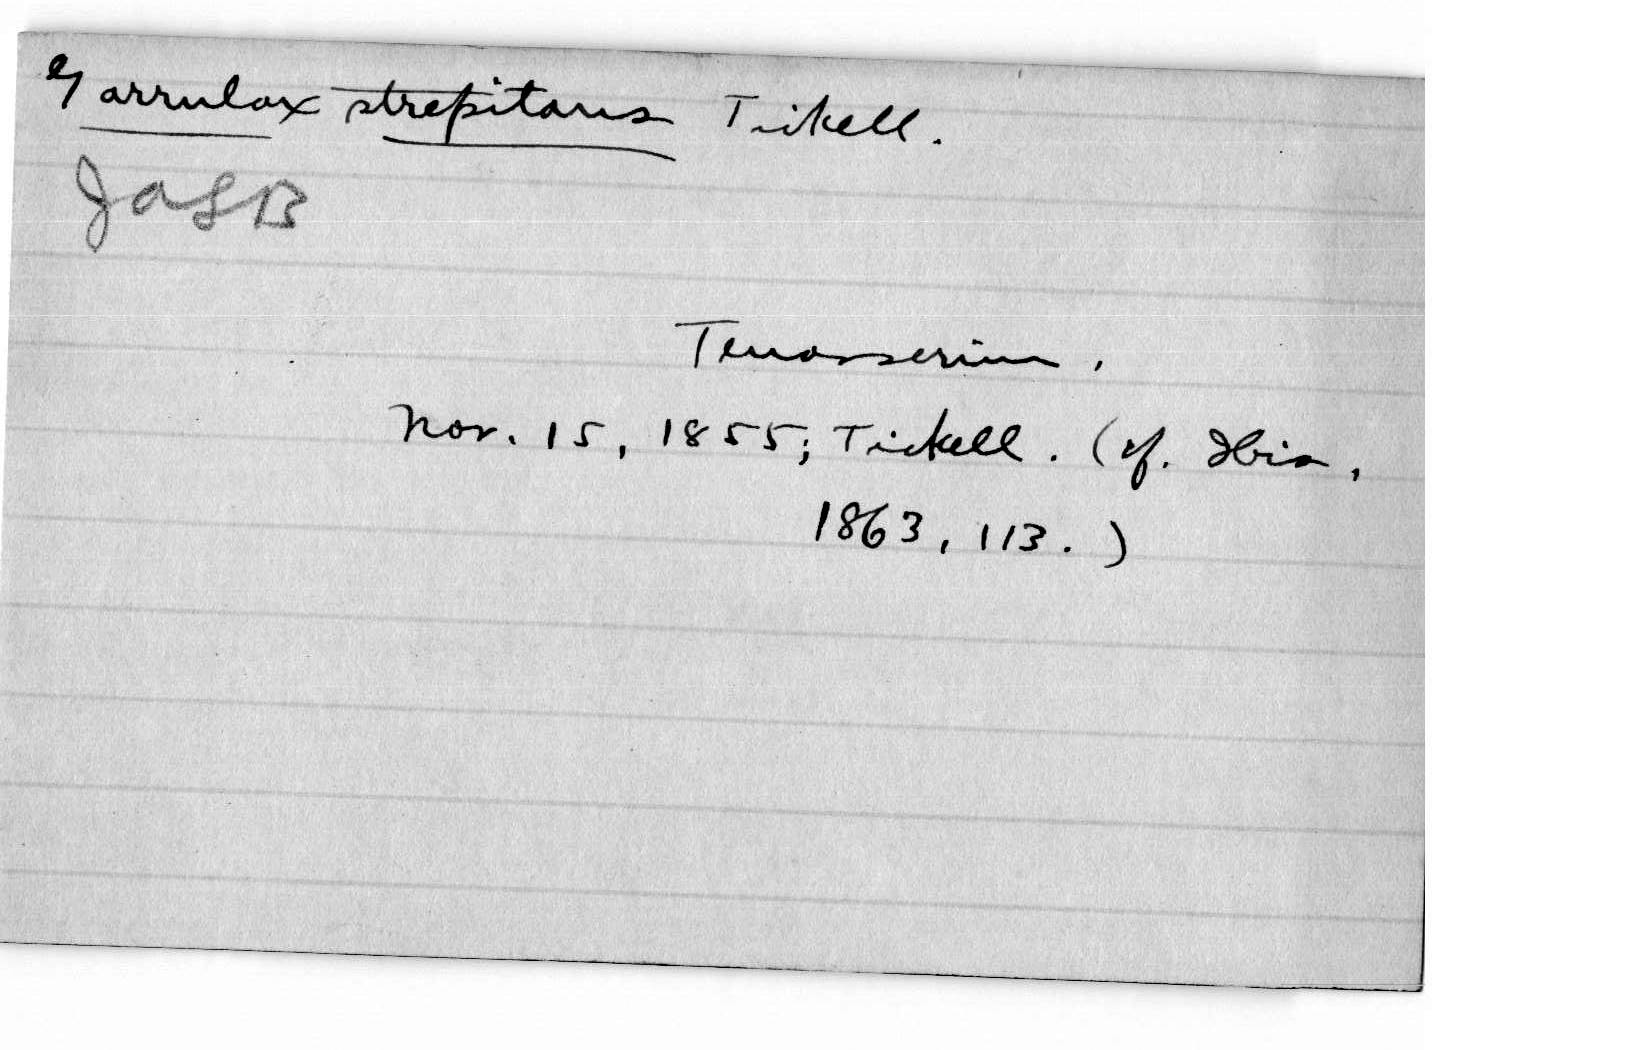 Garrulax strepitans Tickell.
JASB
Tenasserim,
Nov. 15, 1855; Tickell. (cf. Ibis,
1863, 113.)